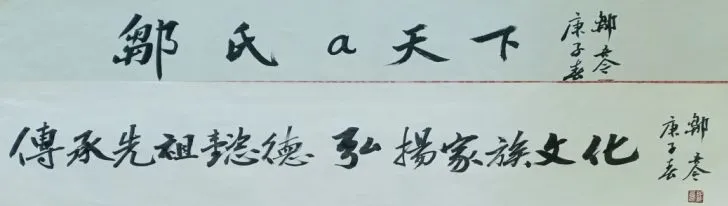 鄒氏a天下
鄒
庚子春
傳承先祖懿德 弘揚家族文化
鄒
庚子春